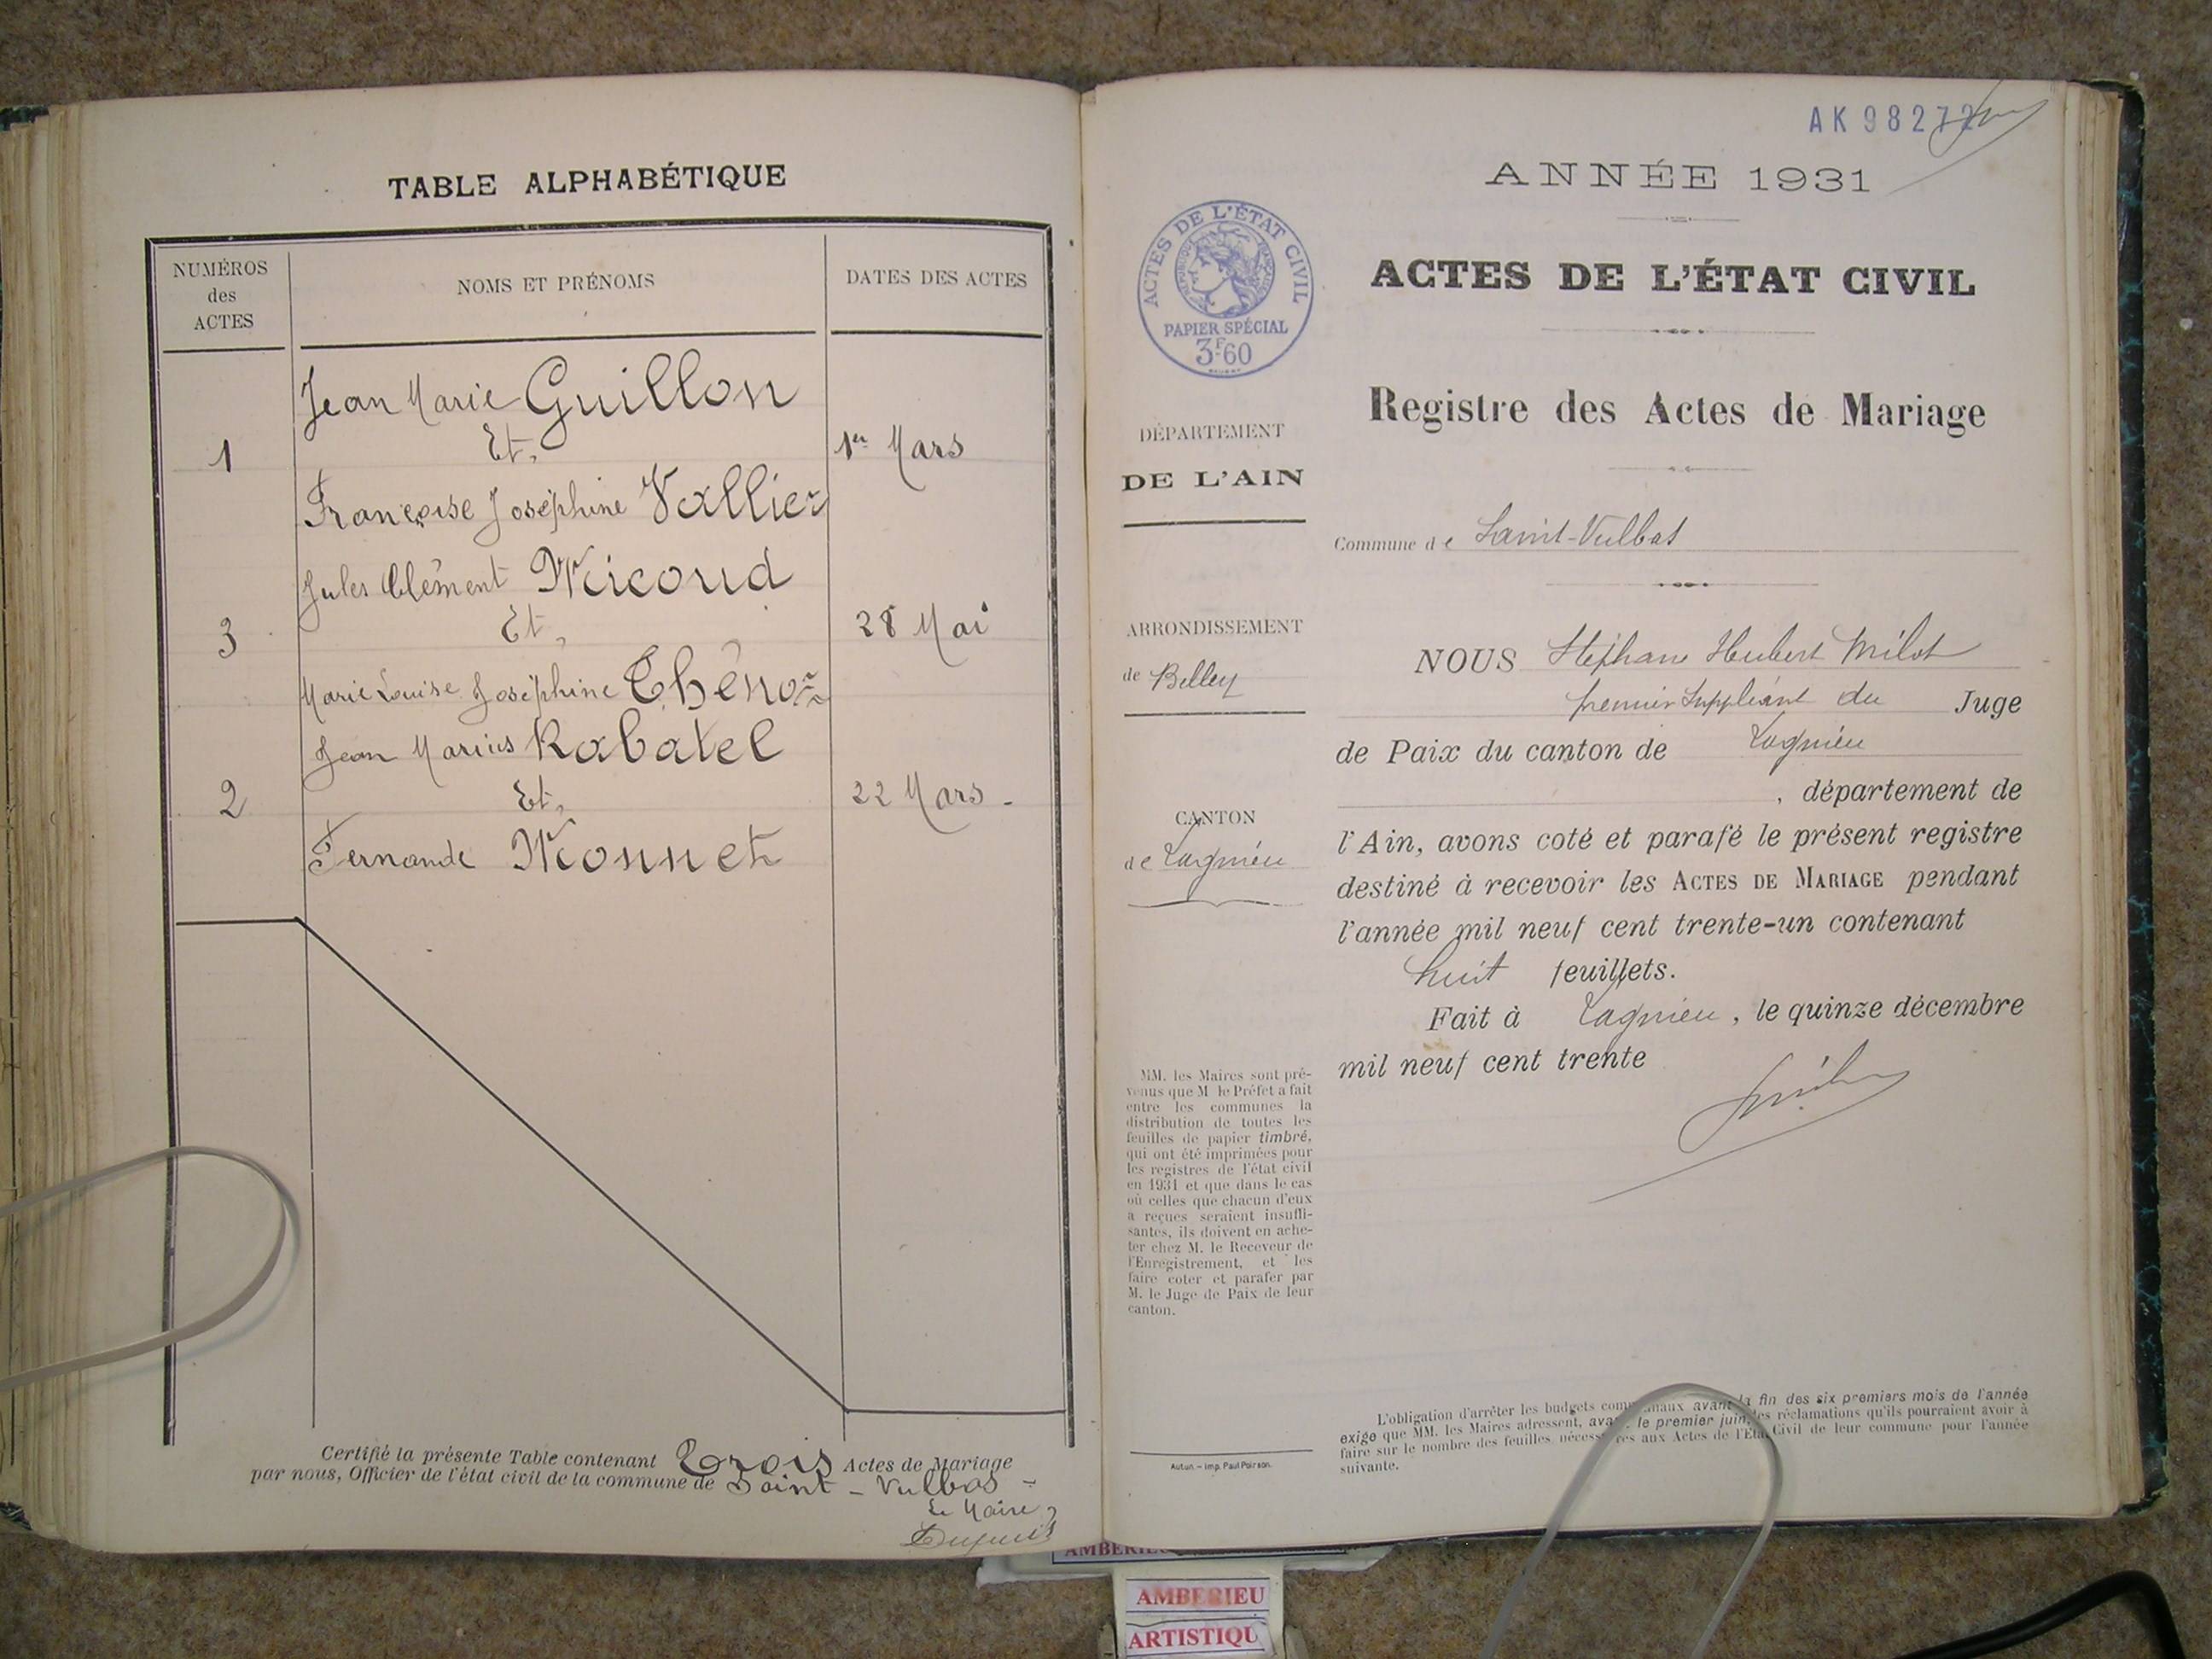 TABLE ALPHABÉTIQUE
NUMÉROS
des
ACTES
NOMS ET PRÉNOMS
DATES DES ACTES
Jean Marie Guillon
1
Et,
1er Mars
Françoise Joséphine Vallier
Jules Clément Micoud
3
Et,
28 Mai
Marie Louise Joséphine Thénoz
Jean Marius Rabatel
2
Et,
22 Mars -
Fernande Monnet
Certifié la présente Table contenant Trois Actes de Mariage
par nous, Officier de l'état civil de la commune de Saint-Vulbas -
Le Maire,
Dupuis
AK 98272
ANNÉE 1931
ACTES DE L'ÉTAT CIVIL
RÉPUBLIQUE FRANÇAISE
PAPIER SPÉCIAL
3F60
ACTES DE L'ÉTAT CIVIL
Registre des Actes de Mariage
DÉPARTEMENT
DE L'AIN
Commune de Saint-Vulbas
ARRONDISSEMENT
de Belley
CANTON
de Lagnieu
NOUS Stéphane Hubert Milot
premier Suppléant du Juge
de Paix du canton de Lagnieu
, département de
l'Ain, avons coté et parafé le présent registre
destiné à recevoir les ACTES DE MARIAGE pendant
l'année mil neuf cent trente-un contenant
huit feuillets.
Fait à Lagnieu, le quinze décembre
mil neuf cent trente
MM. les Maires sont pré-
venus que M le Préfet a fait
entre les communes la
distribution de toutes les
feuilles de papier timbré,
qui ont été imprimées pour
les registres de l'état civil
en 1931 et que dans le cas
où celles que chacun d'eux
a reçues seraient insuffi-
santes, ils doivent en ache-
ter chez M. le Receveur de
l'Enregistrement, et les
faire coter et parafer par
M. le Juge de Paix de leur
canton.
Autun. – Imp. Paul Poirson.
L'obligation d'arrêter les budgets communaux avant la fin des six premiers mois de l'année
exige que MM. les Maires adressent, avant le premier juin, les réclamations qu'ils pourraient avoir à
faire sur le nombre des feuilles nécessaires aux Actes de l'Etat Civil de leur commune pour l'année
suivante.
AMBERIEU
AMBERIEU
ARTISTIQU